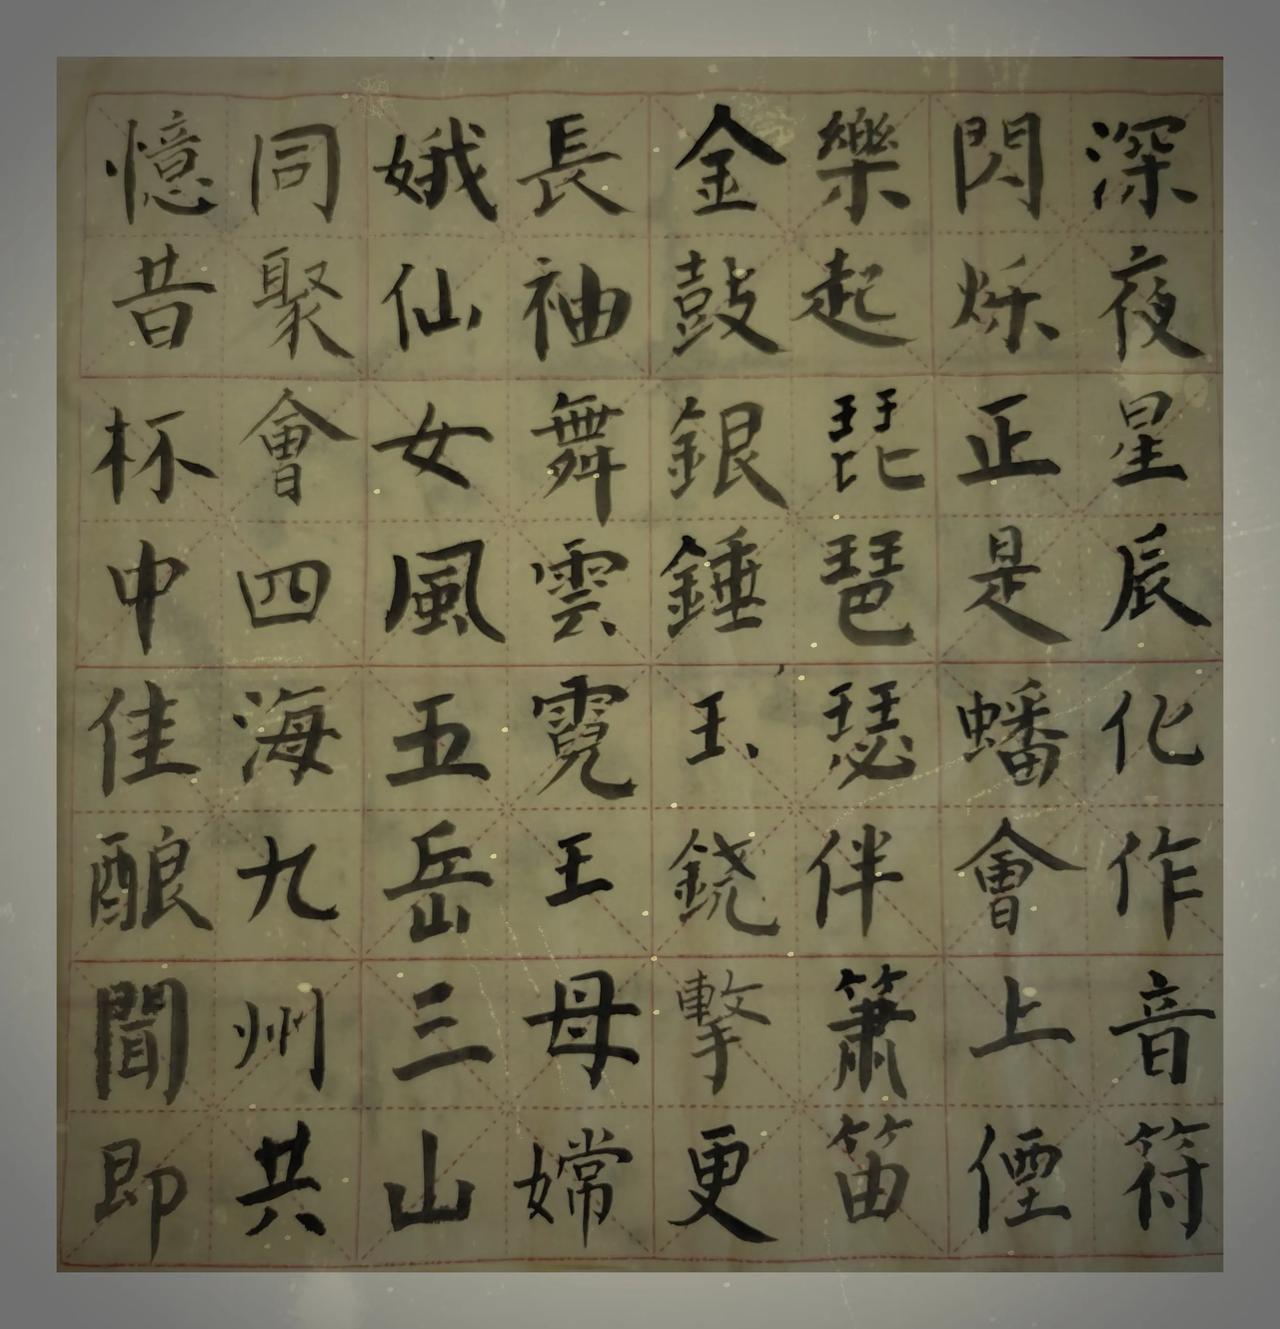 深夜星辰化作音符
閃烁正是蟠會上僊
樂起琵琶瑟伴簫笛
金鼓銀錘玉鐃擊更
長袖舞雲霓王母嫦
娥仙女風五岳三山
同聚會四海九州共
憶昔杯中佳酿聞即